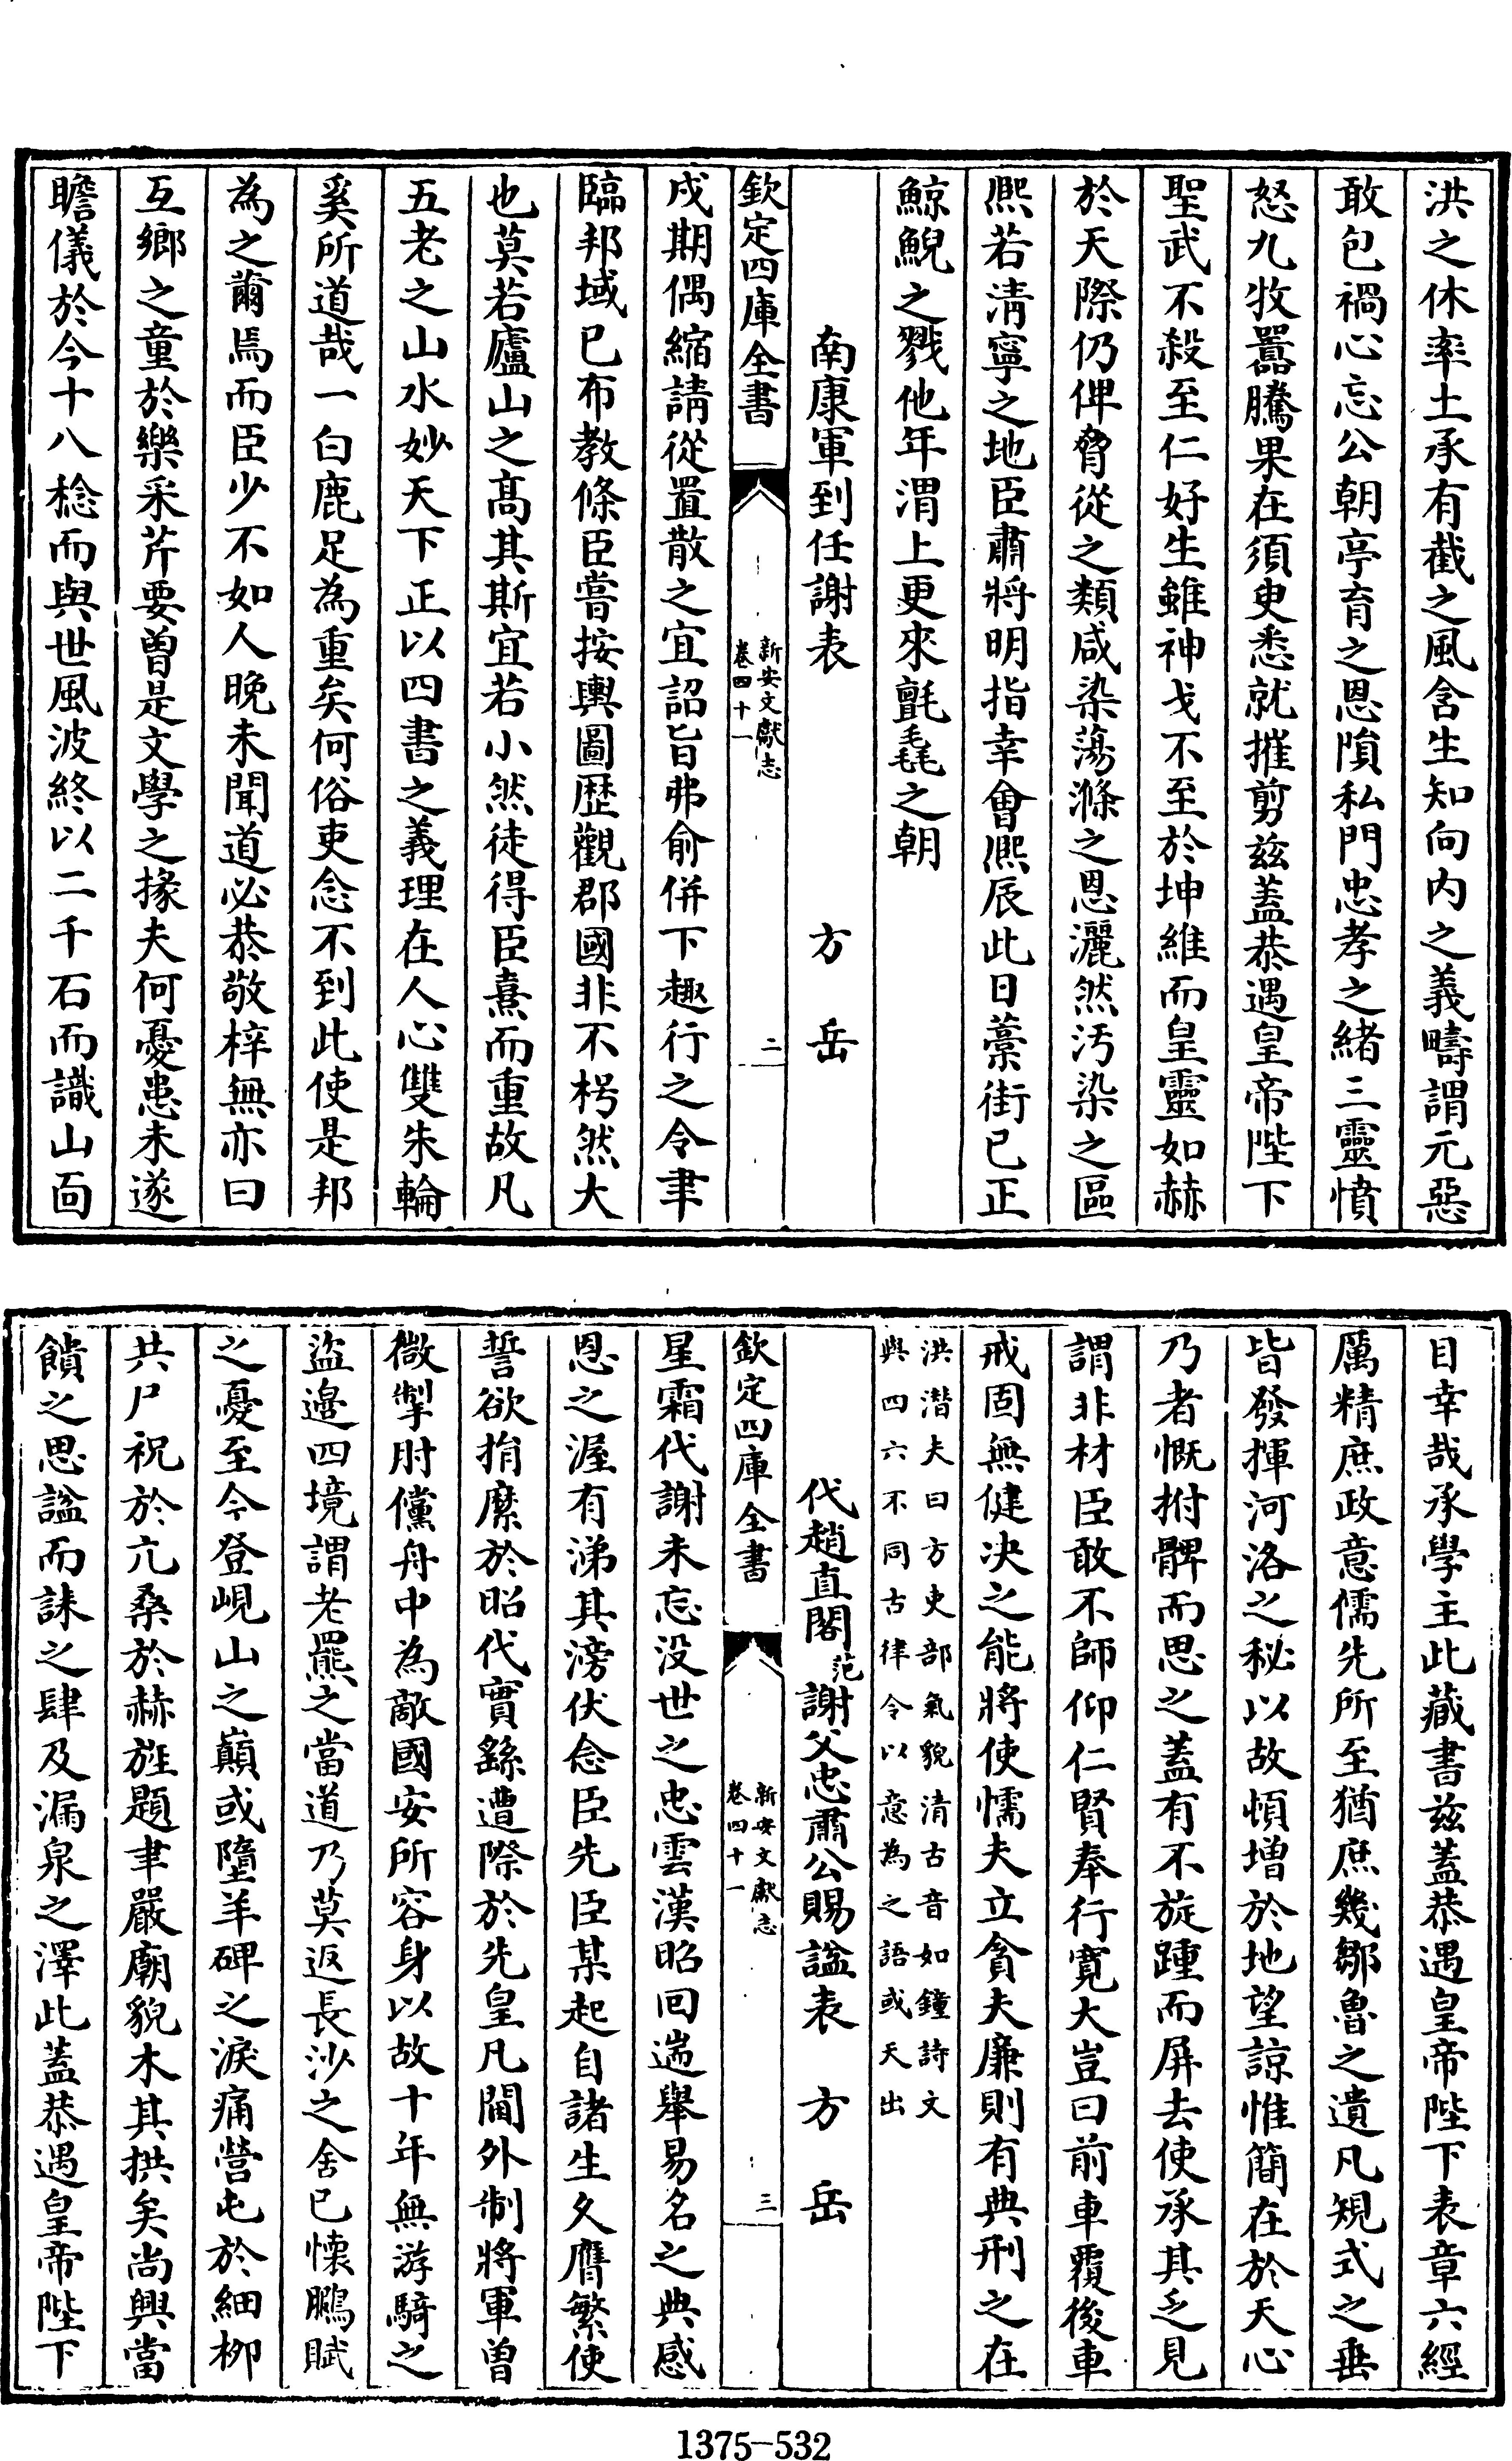 洪之休率土承有截之風含生知向内之義疇謂元惡
敢包禍心忘公朝亭育之恩隕私門忠孝之緒三靈憤
怒九牧嚚騰果在須臾悉就摧剪兹蓋恭遇皇帝陛下
聖武不殺至仁好生雖神戈不至於坤維而皇靈如赫
於天際仍俾脅從之類咸染蕩滌之恩灑然汚染之區
熙若淸寧之地臣肅將明指幸會熙辰此日藁街已正
鯨鯢之戮他年渭上更來氊毳之朝
南康軍到任謝表　方岳
欽定四庫全書
新安文獻志
卷四十一
二
戍期偶縮請從置散之宜詔旨弗俞併下趣行之令聿
臨邦域已布教條臣嘗按輿圖歴觀郡國非不枵然大
也莫若廬山之髙其斯宜若小然徒得臣熹而重故凡
五老之山水妙天下正以四書之義理在人心雙朱輪
奚所道哉一白鹿足為重矣何俗吏念不到此使是邦
為之薾焉而臣少不如人晚未聞道必恭敬梓無亦曰
互鄉之童於樂采芹要曽是文學之掾夫何憂患未遂
瞻儀於今十八稔而與世風波終以二千石而識山面
目幸哉承學主此藏書兹蓋恭遇皇帝陛下表章六經
厲精庶政意儒先所至猶庶幾鄒魯之遺凡規式之垂
皆發揮河洛之秘以故頓増於地望諒惟簡在於天心
乃者慨拊髀而思之蓋有不旋踵而屏去使承其乏見
謂非材臣敢不師仰仁賢奉行寛大豈曰前車覆後車
戒固無健决之能將使懦夫立貪夫廉則有典刑之在
洪潛夫曰方吏部氣貌清古音如鐘詩文
與四六不同古律令以意為之語或天出
代趙直閣范謝父忠肅公賜諡表　方岳
欽定四庫全書
新安文獻志
卷四十一
三
星霜代謝未忘没世之忠雲漢昭回遄舉易名之典感
恩之渥有涕其滂伏念臣先臣某起自諸生夊膺繁使
誓欲捐縻於昭代實繇遭際於先皇凡閫外制將軍曽
微掣肘儻舟中為敵國安所容身以故十年無游騎之
盜邉四境謂老羆之當道乃莫返長沙之舍已懷鵩賦
之憂至今登峴山之巔或墮羊碑之淚痛營屯於細柳
共尸祝於亢桑於赫旌題聿嚴廟貌木其拱矣尚興當
饋之思諡而誄之肆及漏泉之澤此蓋恭遇皇帝陛下
1375-532